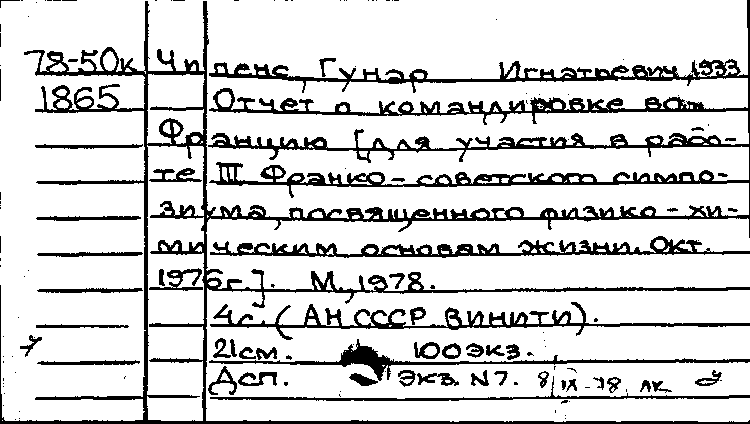 78-50к Чипенс, Гунар Игнатьевич, 1933
1865 Отчет о командировке во
Францию [для участия в рабо-
те III Франко-советского симпо-
зиума, посвященного физико-хи-
мическим основам жизни. Окт.
1976г.]. М., 1978.
4с. (АН СССР. ВИНИТИ).
21см. 100экз.
Дсп. Экз. N7. 8 IX-78